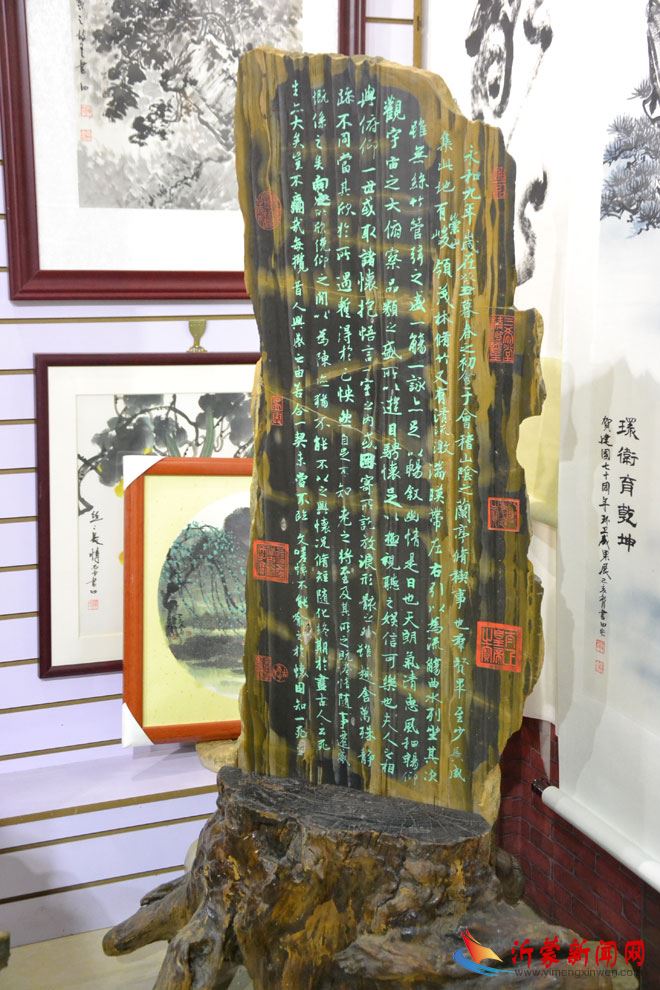 永和九年歲在癸丑暮春之初會于會稽山陰之蘭亭脩稧事也群賢畢至少長咸
集此地有崇山峻領茂林脩竹又有清流激湍暎帶左右引以為流觴曲水列坐其次
雖無絲竹管弦之盛一觴一詠亦足以暢叙幽情是日也天朗氣清惠風和暢仰
觀宇宙之大俯察品類之盛所以遊目騁懷足以極視聽之娛信可樂也夫人之相
與俯仰一世或取諸懷抱悟言一室之內或因寄所託放浪形骸之外雖趣舍萬殊靜
躁不同當其欣於所遇暫得於己怏然自足不知老之將至及其所之既惓情隨事遷感
慨係之矣向之所欣俛仰之閒以為陳迹猶不能不以之興懷況脩短隨化終期於盡古人云死
生亦大矣豈不痛哉每攬昔人興感之由若合一契未嘗不臨文嗟悼不能喻之於懷固知一死
環衛育乾坤
賀建國七十周年
沂蒙新闻网
www.yimengxinwen.com